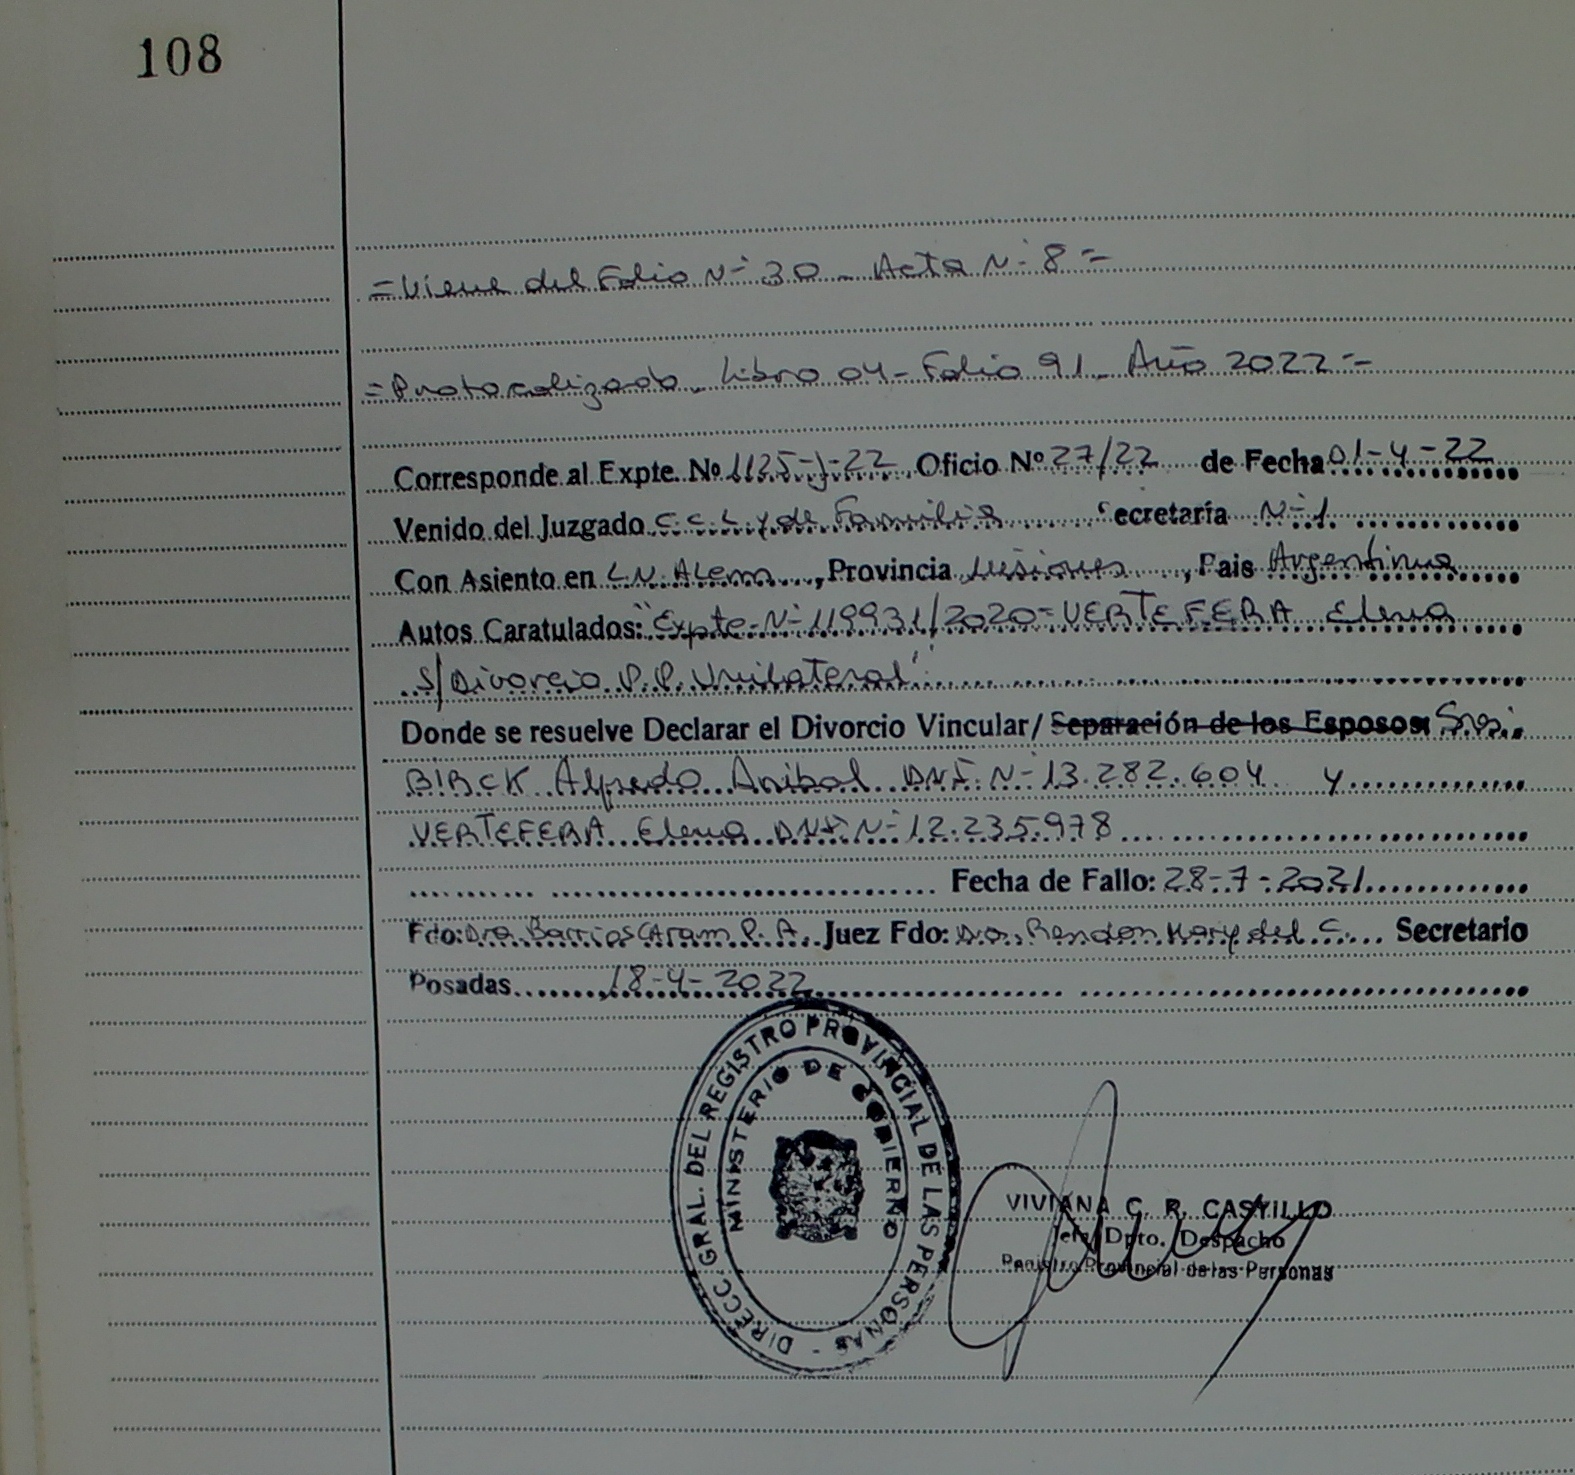 108
= Viene del Folio N° 30 - Acta N° 8 =
= Protocolizado - Libro 04 - Folio 91 - Año 2022 =
Corresponde al Expte. Nº 1125-J-22 Oficio Nº 27/22 de Fecha 01-4-22
Venido del Juzgado C.C.L. y de Familia Secretaría N° 1
Con Asiento en L.N. Alem, Provincia Misiones, Pais Argentina
Autos Caratulados: "Expte. N° 119931/2020 = VERTEFERA Elena
S/Divorcio P.P. Unilateral"
Donde se resuelve Declarar el Divorcio Vincular/ Separación de los Esposos: Sres.
BIBCK Alfredo Anibal DNI. N° 13.282.604 y
VERTEFERA Elena DNI. N° 12.235.978
Fecha de Fallo: 28-7-2021
Fdo: Dra. Barrios Caram P. A. Juez Fdo: Dra. Rendon Mary del C. Secretario
Posadas 18-4-2022
DIRECC. GRAL. DEL REGISTRO PROVINCIAL DE LAS PERSONAS -
MINISTERIO DE GOBIERNO
VIVIANA C. R. CASTILLO
Jefa Dpto. Despacho
Registro Provincial de las Personas